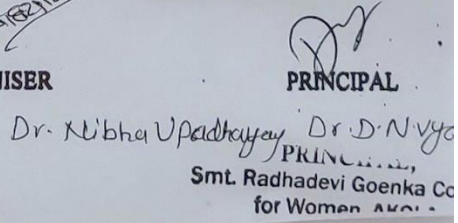 ISER PRINCIPAL
Dr. Nibha Upadhayay Dr. D.N.Vya
PRINCIPAL,
Smt. Radhadevi Goenka Co
for Women AKOLA